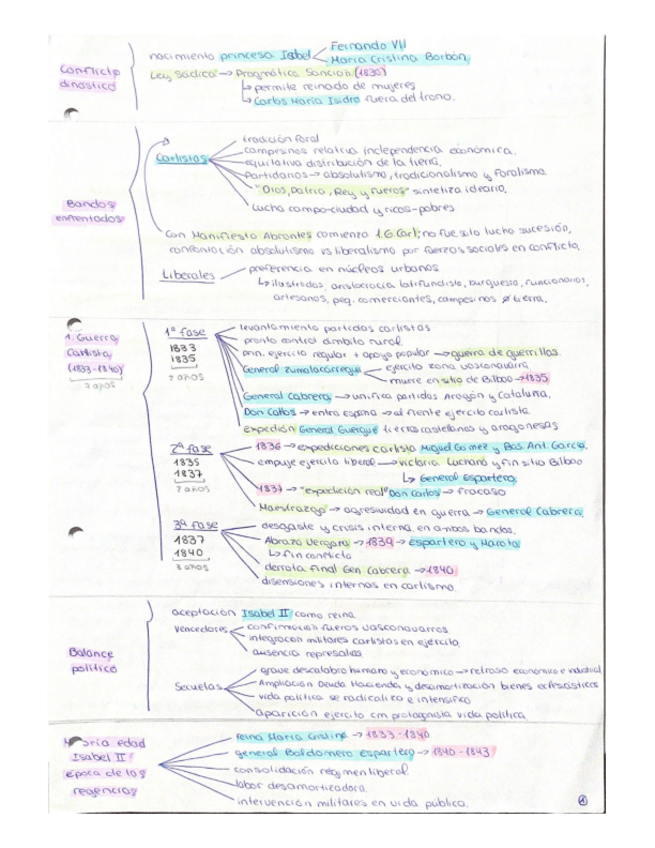 Conflicto dinástico
nacimiento princesa Isabel
Fernando VII
María Cristina Borbón
Ley Sádica → Pragmática Sanción (1830)
↳ permite reinado de mujeres
↳ Carlos María Isidro fuera del trono.
Bandos enfrentados
Carlistas
tradición foral
campesinos relativa independencia económica.
equitativa distribución de la tierra.
Partidarios → absolutismo, tradicionalismo y foralismo.
"Dios, Patria, Rey y Fueros" sintetiza ideario.
Lucha campo-ciudad y ricos-pobres
Con Manifiesto Abrantes comienza 1.G.Carl; no fue sólo lucha sucesión,
confrontación absolutismo vs liberalismo por fuerzas sociales en conflicto.
Liberales
preferencia en núcleos urbanos
↳ ilustrados, aristocracia latifundista, burguesía, funcionarios,
artesanos, peq. comerciantes, campesinos ∅ tierra.
1. Guerra Carlista (1833-1840)
7 años
1ª fase
1833
1835
2 años
levantamiento partidas carlistas
pronto control ámbito rural.
prin. ejercito regular + apoyo popular → guerra de guerrillas.
General Zumalacárregui
ejercito zona vasconavarra
muere en sitio de Bilbao → 1835
General Cabrera → unifica partidas Aragón y Cataluña.
Don Carlos → entra España → al frente ejercito carlista
expedión General Guergué tierras castellanas y aragonesas
2ª fase
1835
1837
2 años
1836 → expediciones carlista Miguel Gómez y Bas. Ant. García.
empuje ejercito liberal → victoria Luchana y fin sitio Bilbao
↳ General Espartero.
1837 → "expedición real" Don Carlos → fracaso
Maestrazgo → agresividad en guerra → General Cabrera.
3ª fase
1837
1840
3 años
desgaste y crisis interna en ambos bandos.
Abrazo Vergara → 1839 → Espartero y Maroto
↳ fin conflicto
derrota final Gen Cabrera → 1840
disensiones internas en carlismo
Balance político
aceptación Isabel II como reina
vencedores
confirmación fueros vasconavarros
integracon militares carlistas en ejército.
ausencia represalias
Secuelas
grave descalabro humano y economico → retraso económico e industrial
Ampliación Deuda Hacienda y desamortización bienes eclesiásticos
vida política se radicaliza e intensifica
aparición ejercito cm protagonista vida política
edad Isabel II: época de las regencias
reina María Cristina → 1833-1840
general Baldomero Espartero → 1840-1843
consolidación régimen liberal.
labor desamortizadora.
intervención militares en vida pública.
①